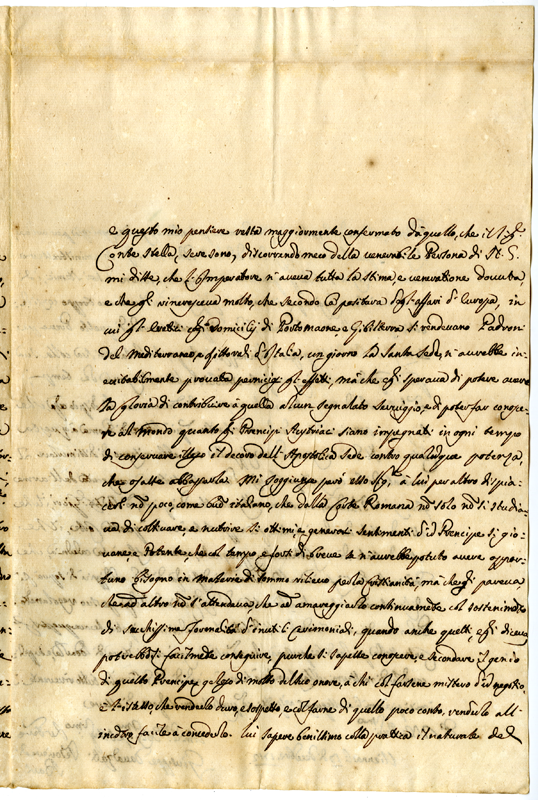 e questo mio pensiere resta maggiormente confermato da quello, che il Sig.r
Conte Stella, sere sono, discorrendo meco della venerabile Persona di St. S.
mi disse, che l'Imperatore n'aveva tutta la stima, e veneratione dovuta,
e che gli rincresceva molto, che secondo la positura degl'affari d'Europa, in
cui gl' Eretici cogl' Domicilij di Portomaone e Gibilterra si rendevano Padroni
del Mediterraneo, e Littorali d'Italia, un giorno la Santa Sede, n'avrebbe in-
evitabilmente provati perniciosi gl'effetti, mà che egli sperava di potere avere
la gloria di contribuire à quella alcun segnalato servigio, e di poter far conosce-
re al Mondo quanto gli Prencipi Austriaci siano impegnati in ogni tempo
di conservare illeso il decoro dell'Apostolica Sede contro qualunque potenza,
che osasse abbassarla. Mi soggiunse però esso Sig.r à lui per altro dispia-
cerli nõ poco, come buõ italiano, che dalla Corte Romana nõ solo nõ si studia-
va di coltivare, e nutrire si ottimi, e generosi sentimenti d'ũ Prencipe si gio-
vane, e Potente, che col tempo, e forsi di breve se n'avrebbe potuto avere oppor-
tuno bisogno in materie di sommo rilievo per la xp̃tianità, mà che gli pareva
che ad altro nõ s'attendeva, che ad amareggiarlo continuamẽte col sostenimẽto
di secchissime formalità d'inutili ceremoniali, quando anche quelli, egli diceva
potrebbõsi facilmẽte conseguire, purche si sapesse conoscere, e secondare il genio
di questo Prencipe, geloso di molto del suo onore, à chi col farsene mistero d'ũ negotio,
è l'istesso, che renderlo duro, e sospetto, e col farne di quello poco conto, renderlo all'
incõtro facile à concederlo. lui sapere benissimo colla prattica il naturale del